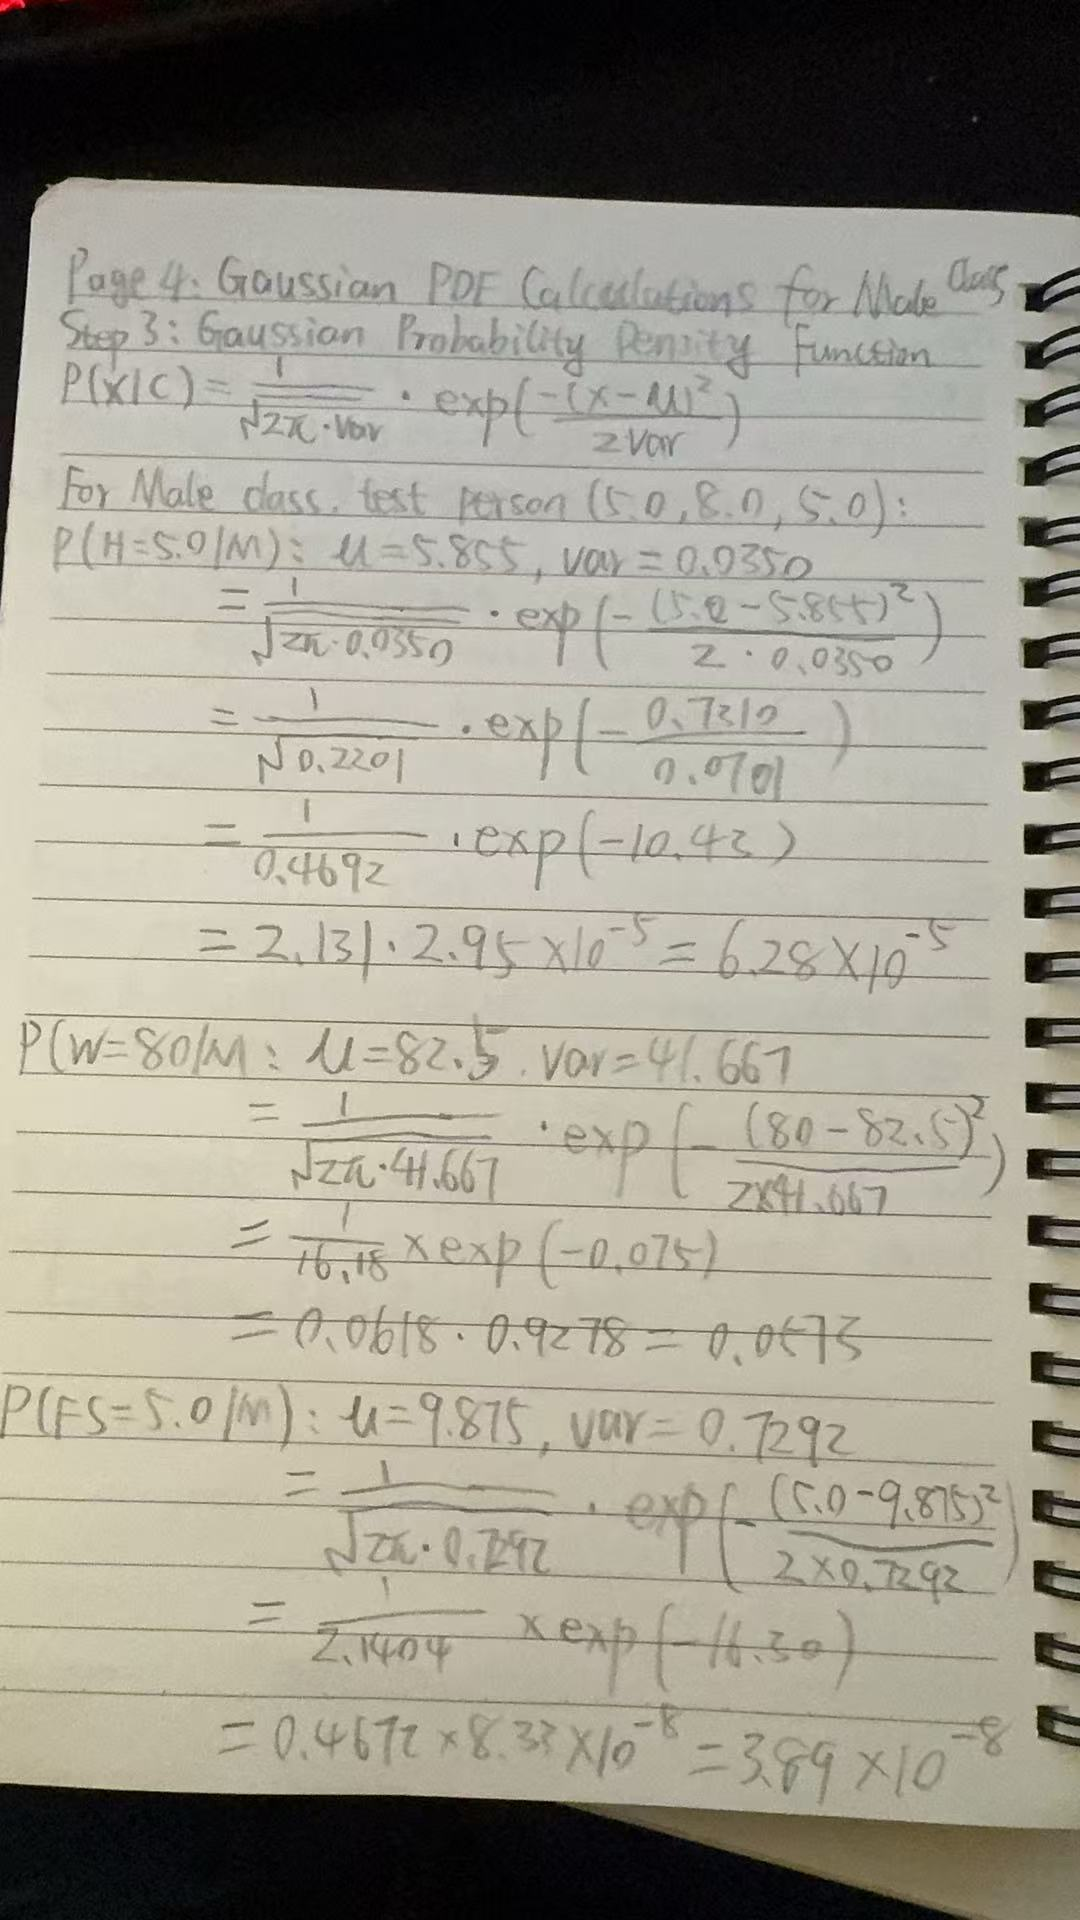 Page 4. Gaussian PDF Calculations for Male Class
Step 3: Gaussian Probability Density Function
P(X|C) = 1/√(2π·var) · exp(-(x-μ)²/2var)
For Male class. test person (5.0, 8.0, 5.0):
P(H=5.0|M): μ=5.855, var=0.0350
= 1/√(2π·0.0350) · exp(-(5.0-5.855)²/2·0.0350)
= 1/√0.2201 · exp(-0.7310/0.0701)
= 1/0.4692 · exp(-10.43)
= 2.131 · 2.95×10⁻⁵ = 6.28×10⁻⁵
P(W=80|M: μ=82.5. var=41.667
= 1/√(2π·41.667) · exp(-(80-82.5)²/2×41.667)
= 1/16.18 × exp(-0.075)
= 0.0618 · 0.9278 = 0.0573
P(FS=5.0|M): μ=9.875, var=0.7292
= 1/√(2π·0.7292) · exp(-(5.0-9.875)²/2×0.7292)
= 1/2.1404 × exp(-16.30)
= 0.4672 × 8.33×10⁻⁸ = 3.89×10⁻⁸